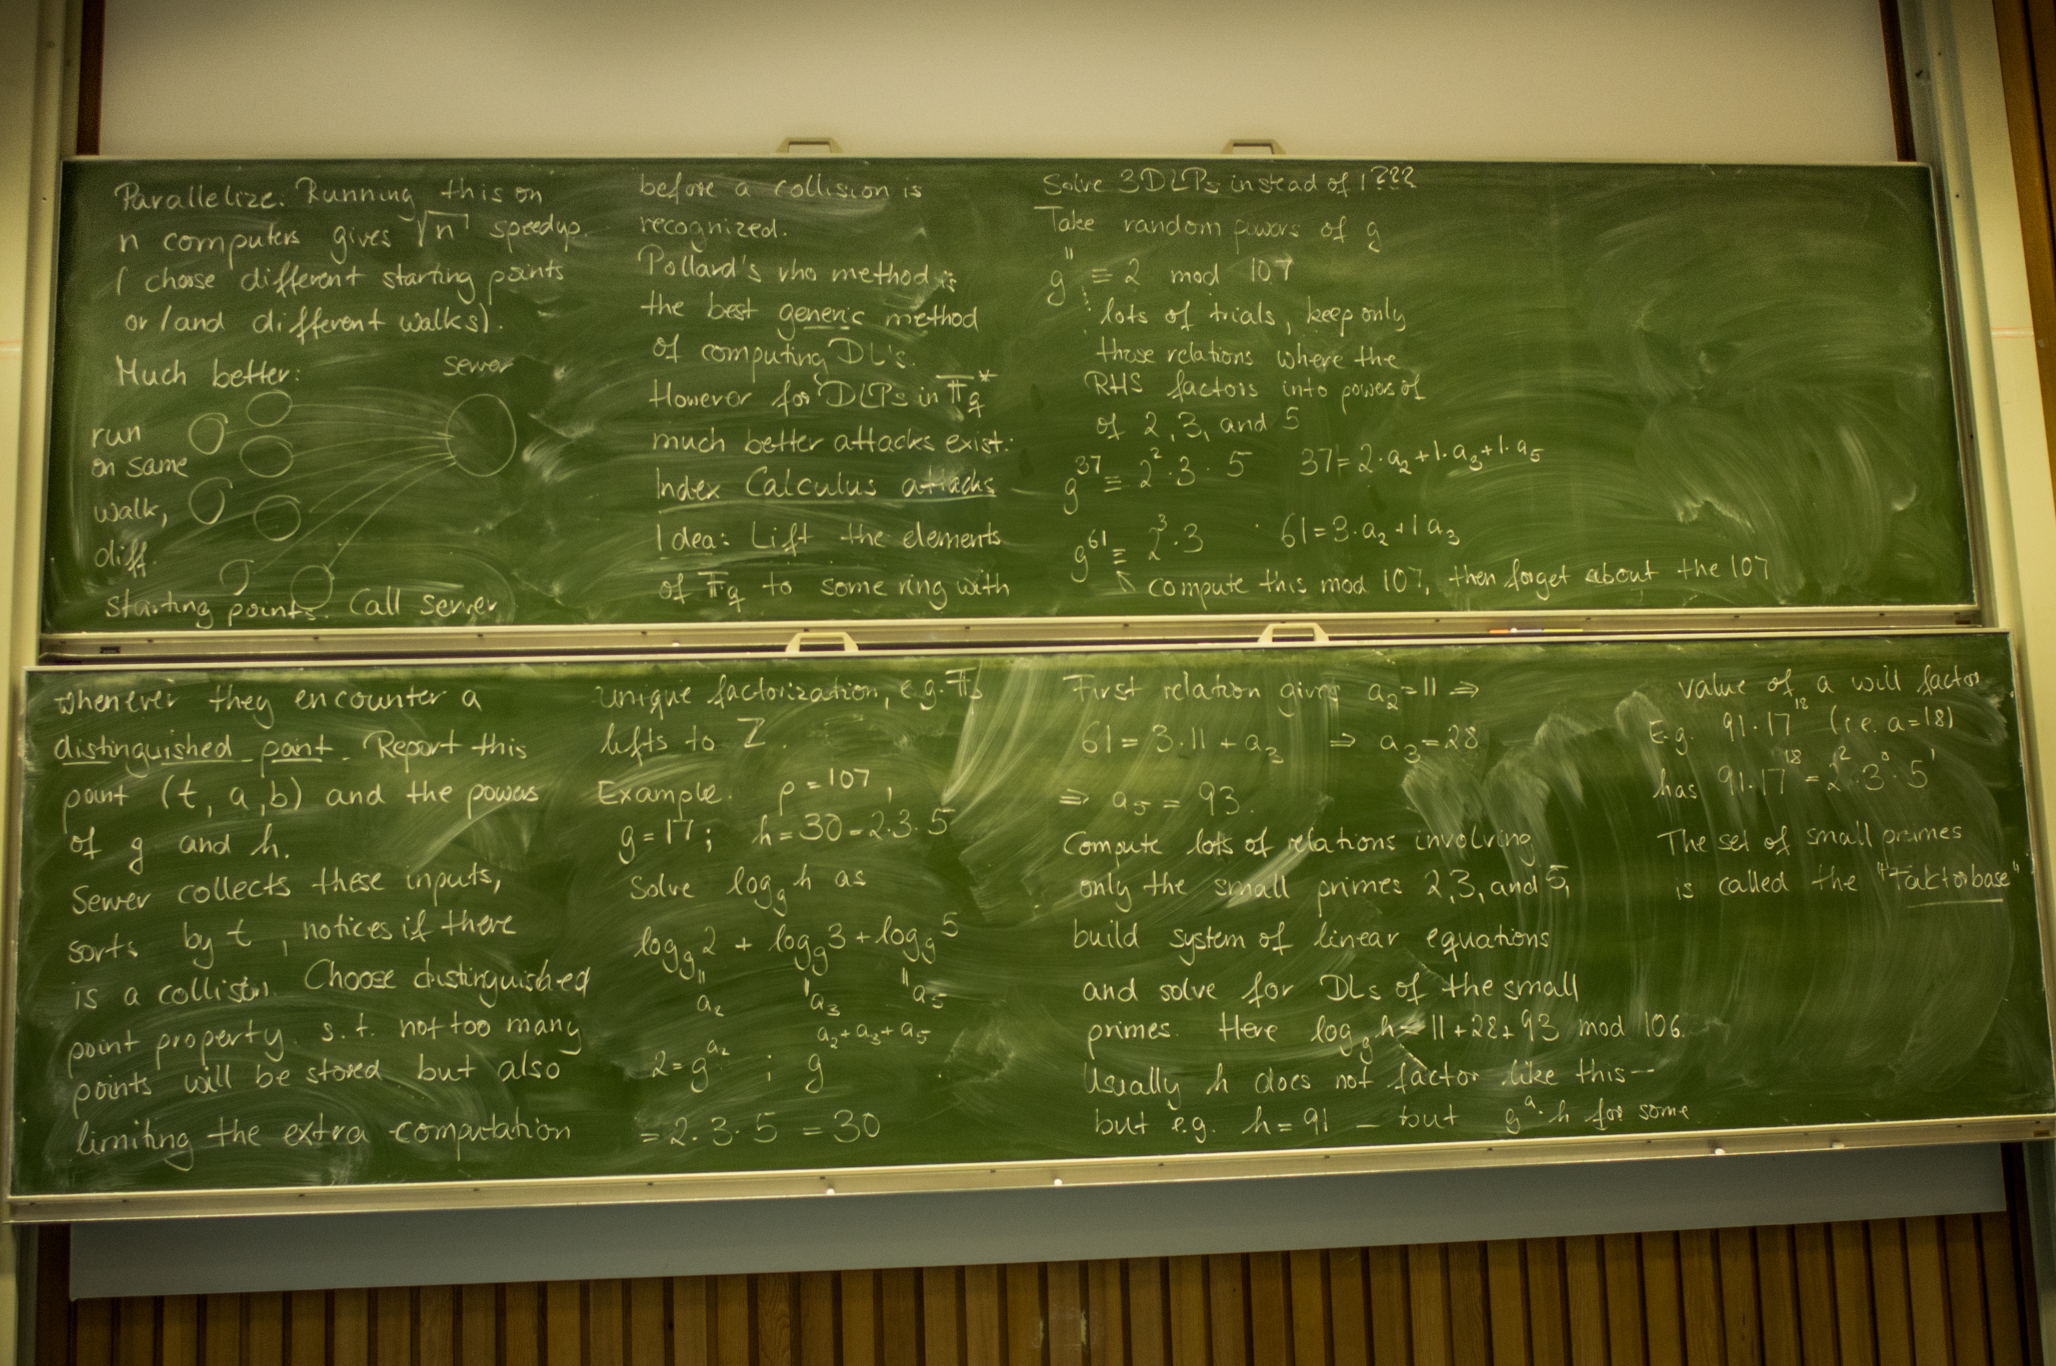 Parallelize: Running this on
n computers gives √n speedup.
( choose different starting points
or/and different walks).
Much better:
server
run
on same
walk,
diff.
starting points. Call server
whenever they encounter a
distinguished point. Report this
point (t, a, b) and the powers
of g and h.
Server collects these inputs,
sorts by t, notices if there
is a collision. Choose distinguished
point property s.t. not too many
points will be stored but also
limiting the extra computation
before a collision is
recognized.
Pollard's rho method is
the best generic method
of computing DL's.
However for DLPs in 𝔽q*
much better attacks exist:
Index Calculus attacks
Idea: Lift the elements
of 𝔽q to some ring with
unique factorization, e.g. 𝔽p
lifts to ℤ.
Example: p = 107,
g = 17; h = 30 = 2·3·5
Solve log_g h as
log_g 2 + log_g 3 + log_g 5
" " "
a₂ a₃ a₅
2 = g^a₂ ; g^(a₂+a₃+a₅)
= 2·3·5 = 30
Solve 3 DLPs instead of 1???
Take random powers of g
g¹¹ ≡ 2 mod 107
⋮ lots of trials, keep only
those relations where the
RHS factors into powers of
of 2, 3, and 5
g³⁷ ≡ 2²·3·5 37 = 2·a₂+1·a₃+1·a₅
g⁶¹ ≡ 2³·3 61 = 3·a₂+1a₃
↖ compute this mod 107, then forget about the 107
First relation gives a₂ = 11 ⇒
61 = 3·11 + a₃ ⇒ a₃ = 28
⇒ a₅ = 93.
Compute lots of relations involving
only the small primes 2, 3, and 5,
build system of linear equations
and solve for DLs of the small
primes. Here log_g h = 11+28+93 mod 106.
Usually h does not factor like this –
but e.g. h = 91 – but g^a·h for some
value of a will factor
E.g. 91·17¹⁸ (i.e. a=18)
has 91·17¹⁸ = 2²·3⁰·5¹
The set of small primes
is called the "Faktorbase"